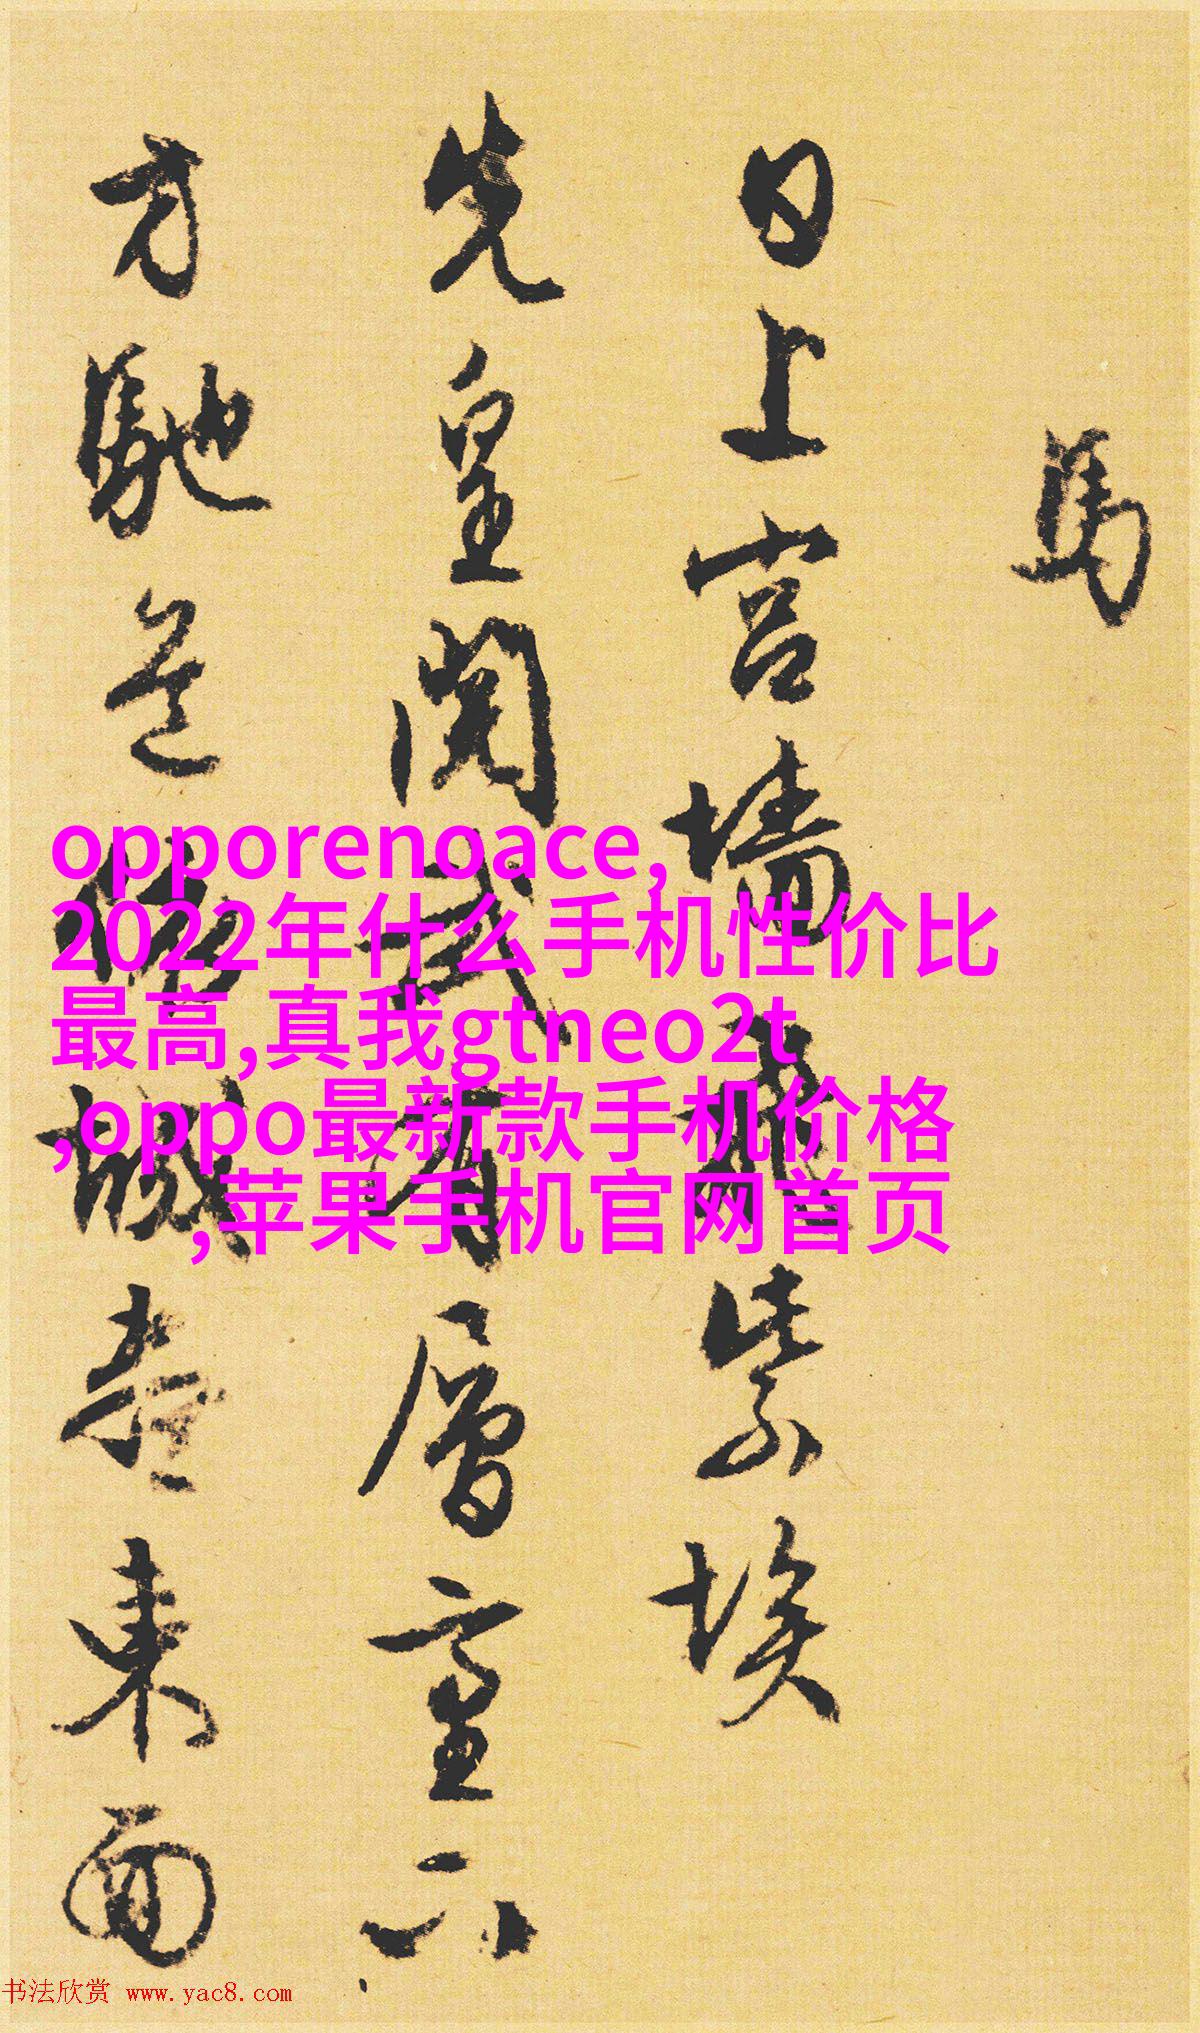 馬
日上宫墙飛紫埃
先皇閱武有層臺六
方馳道
東面
opporenoace,
2022年什么手机性价比
最高,真我gtneo2t
,oppo最新款手机价格
,苹果手机官网首页
书法欣赏 www.yac8.com